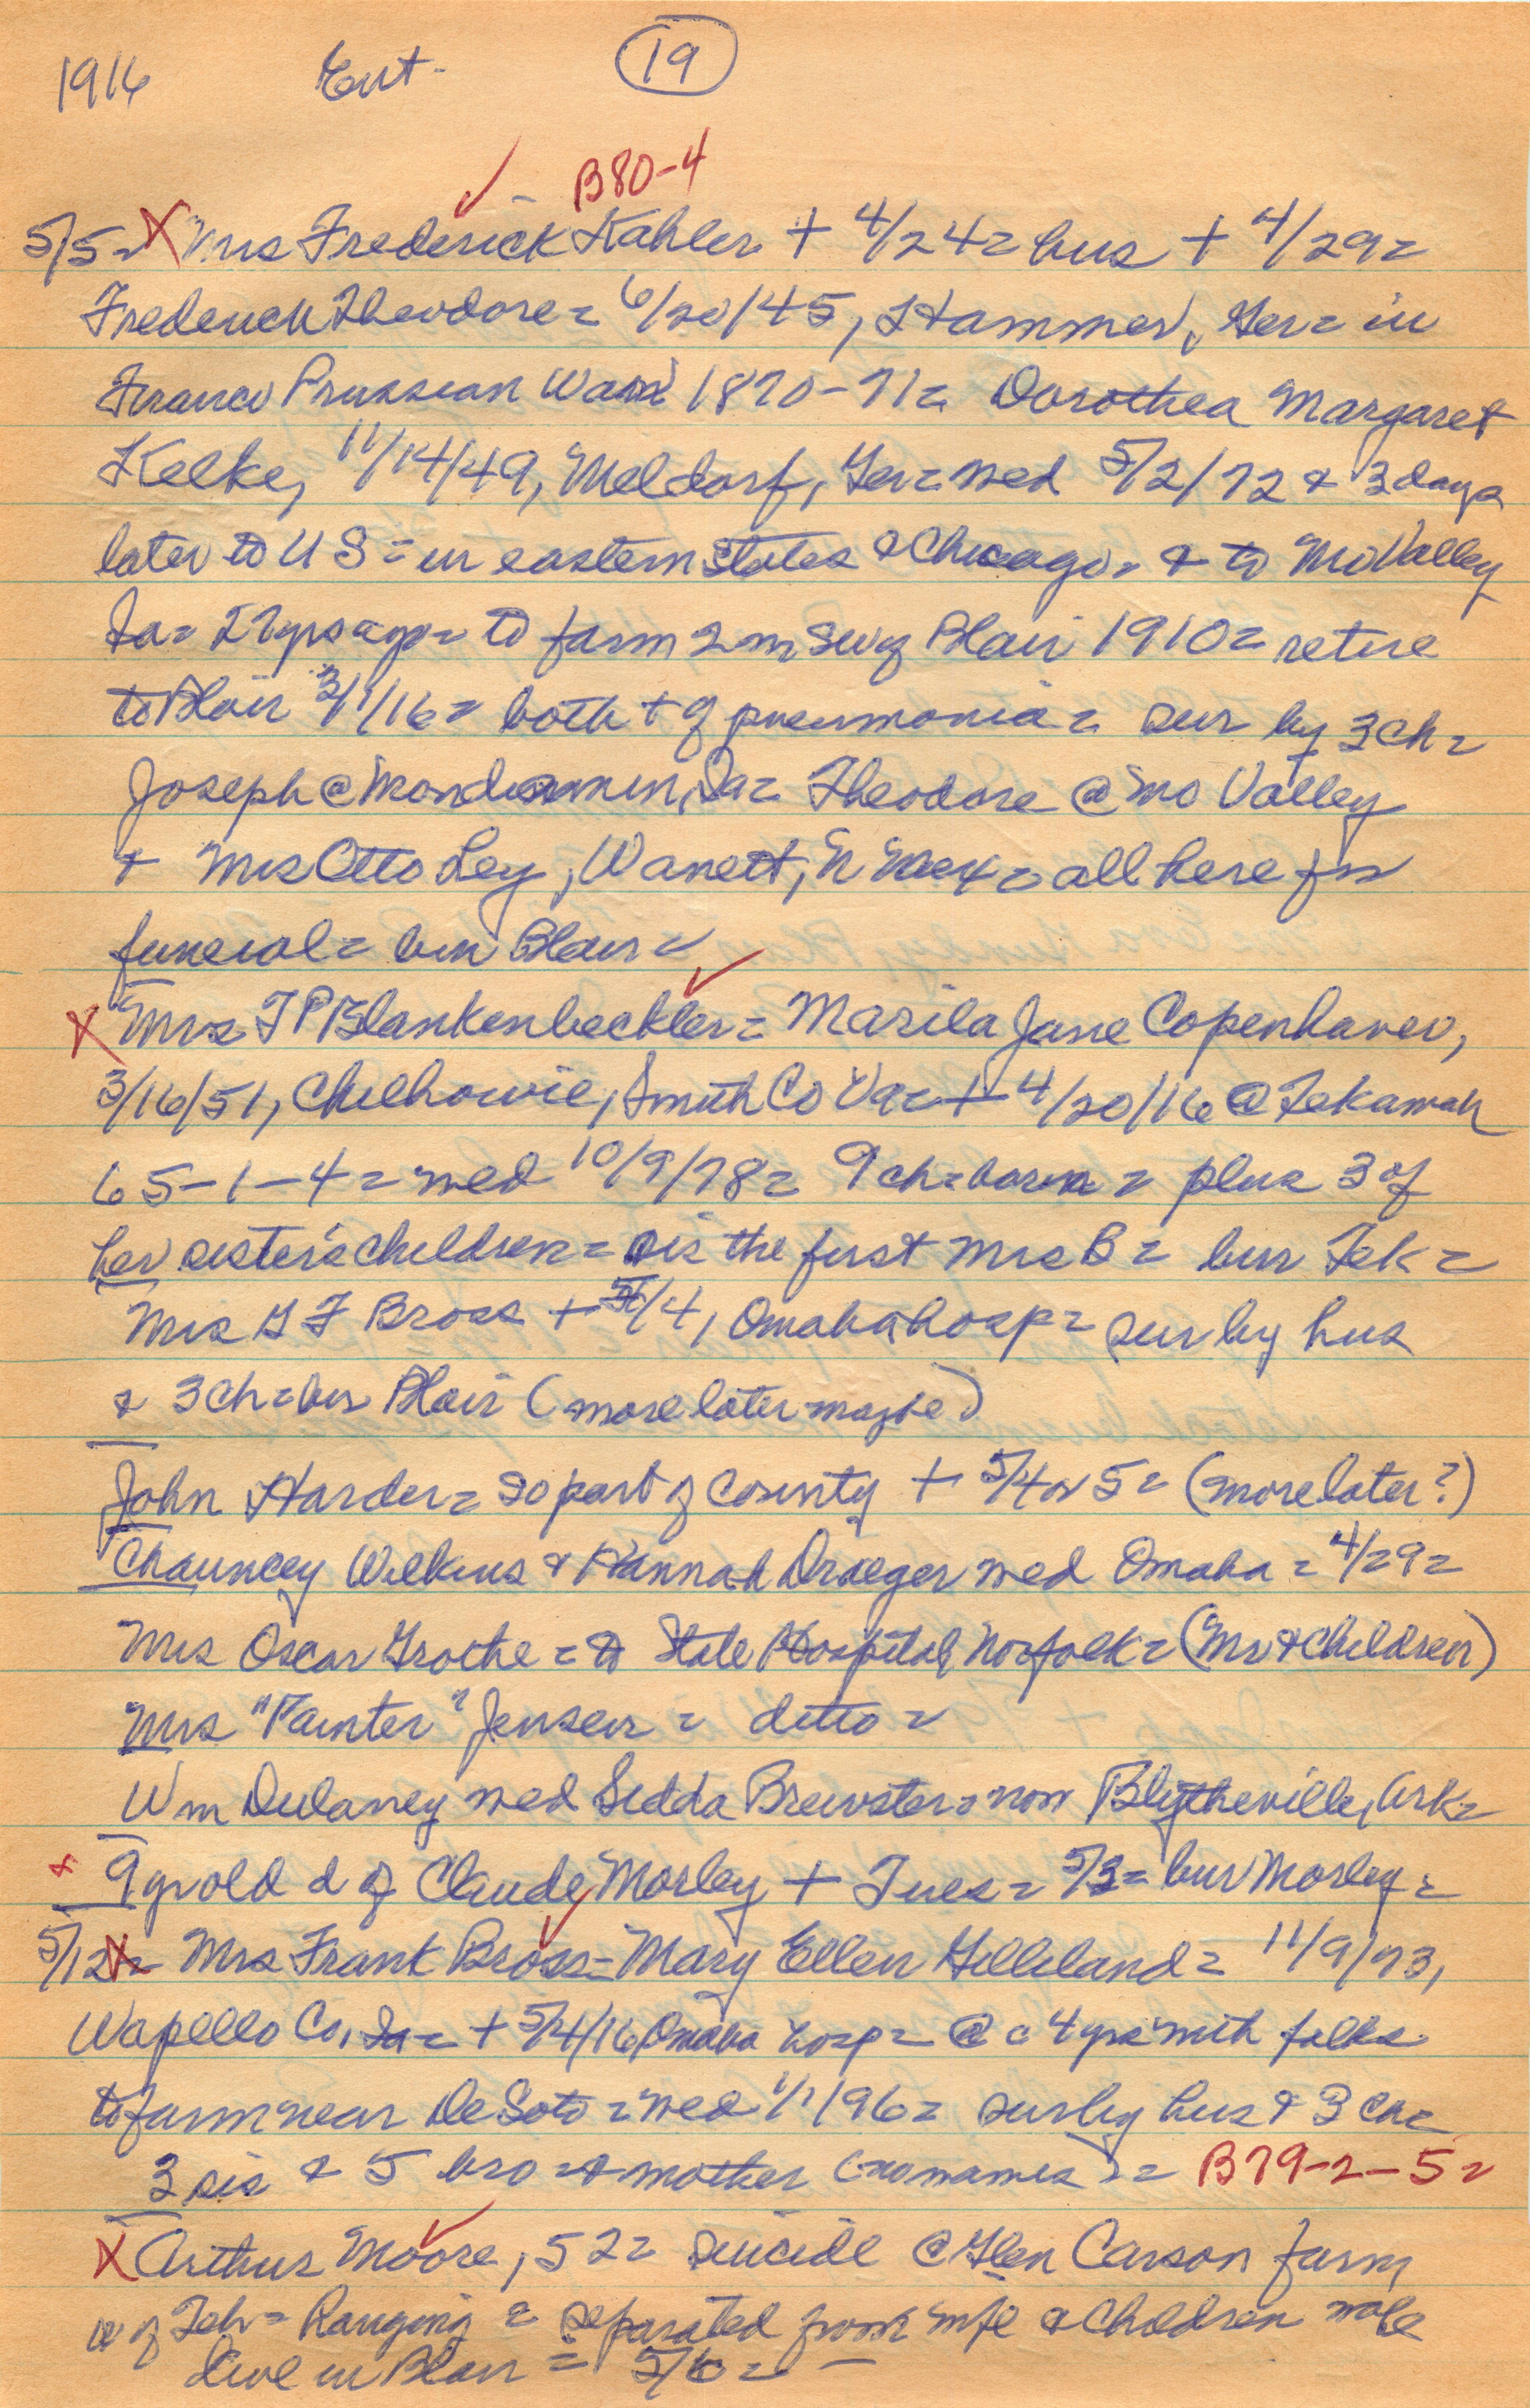 1916 Ent. 19
B80-4
5/5= X Mrs Frederick Kahler + 4/24= hus + 4/29=
Frederick Theodore= 6/20/45, Hammer, Ger= in
Franco Prussian War 1870-71= Dorothea Margaret
Kelke, 11/14/49, Meldorf, Ger= wed 5/2/72 & 3 days
later to US= in eastern states & Chicago= & to Mo Valley
Ia= 27 yrs ago= to farm 2 m SW of Blair 1910= retire
to Blair 3/1/16= both + of pneumonia= sur by 3 ch=
Joseph @ Mondamin, Ia= Theodore @ Mo Valley
& Mrs Otto Ley, Wanett, N Mex= all here for
funeral= bur Blair=
X Mrs T P Blankenbeckler= Marila Jane Copenhaver,
3/16/51, Chilhowie, Smith Co Va= + 4/20/16 @ Tekamah
65-1-4= wed 10/9/78= 9 ch= born= plus 3 of
her sister's children= sis the first Mrs B= bur Tek=
Mrs G F Bross + 5/4, Omaha hosp= sur by hus
& 3 ch= bur Blair (more later maybe)
John Harder= so part of county + 5/4 or 5= (more later?)
Chauncey Wilkins & Hannah Draeger wed Omaha= 4/29=
Mrs Oscar Grothe= to State Hospital, Norfolk= (Mr & children)
Mrs "Painter" Jensen= ditto=
Wm Dulaney wed Sedda Brewster= now Blytheville, Ark=
x 9 yr old d of Claude Morley + Tues= 5/2= bur Morley=
5/12= X Mrs Frank Bross= Mary Ellen Gilleland= 11/9/73,
Wapello Co, Ia= + 5/4/16 Omaha hosp= @ c 4 yrs with folks
to farm near De Soto= wed 1/1/96= sur by hus & 3 ch=
3 sis & 5 bro= & mother (no names)= B79-2-5=
X Arthur Moore, 52= suicide @ Glen Carson farm
w of Tek= hanging= separated from wife & children who
live in Blair= 5/6=